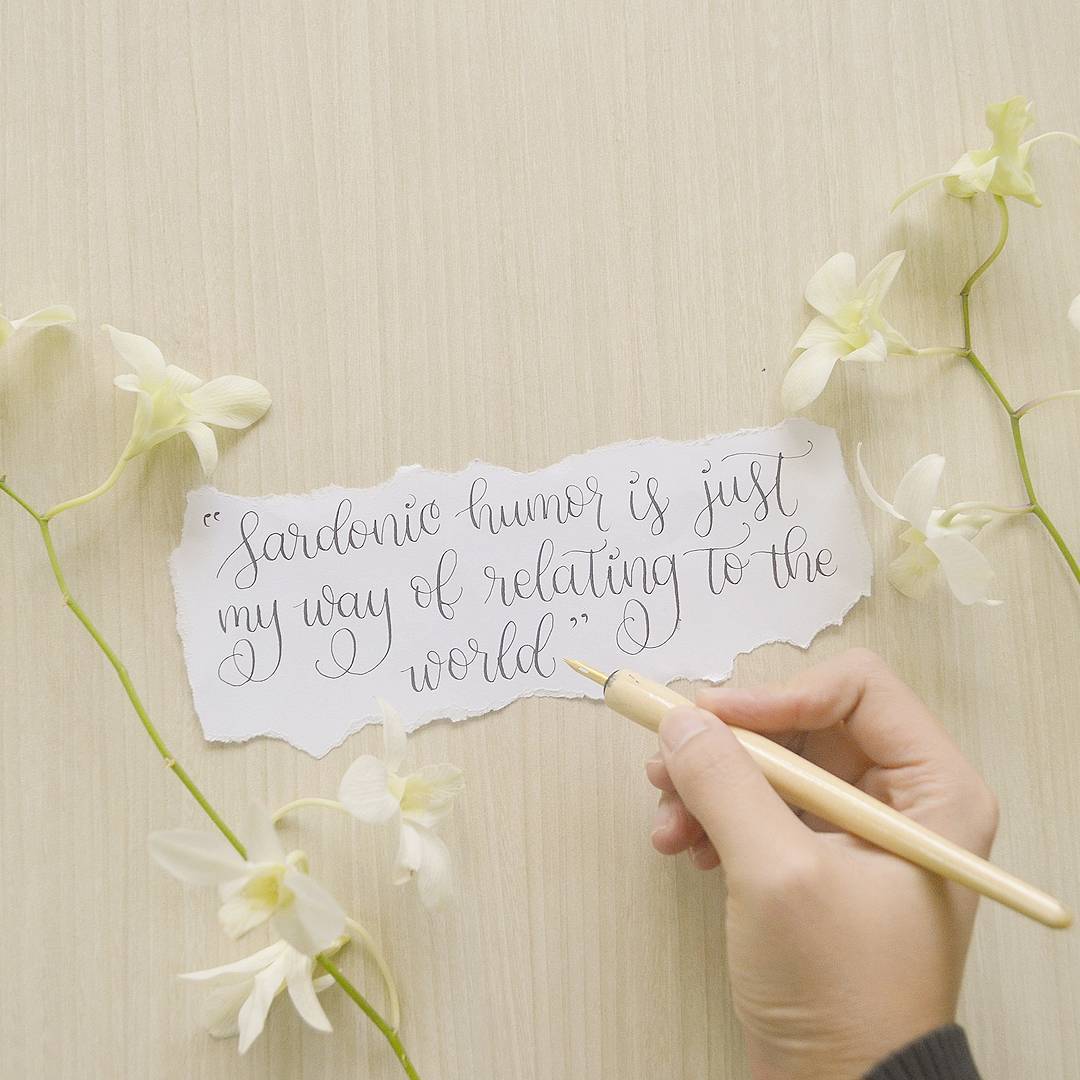 “Sardonic humor is just
my way of relating to the
world”